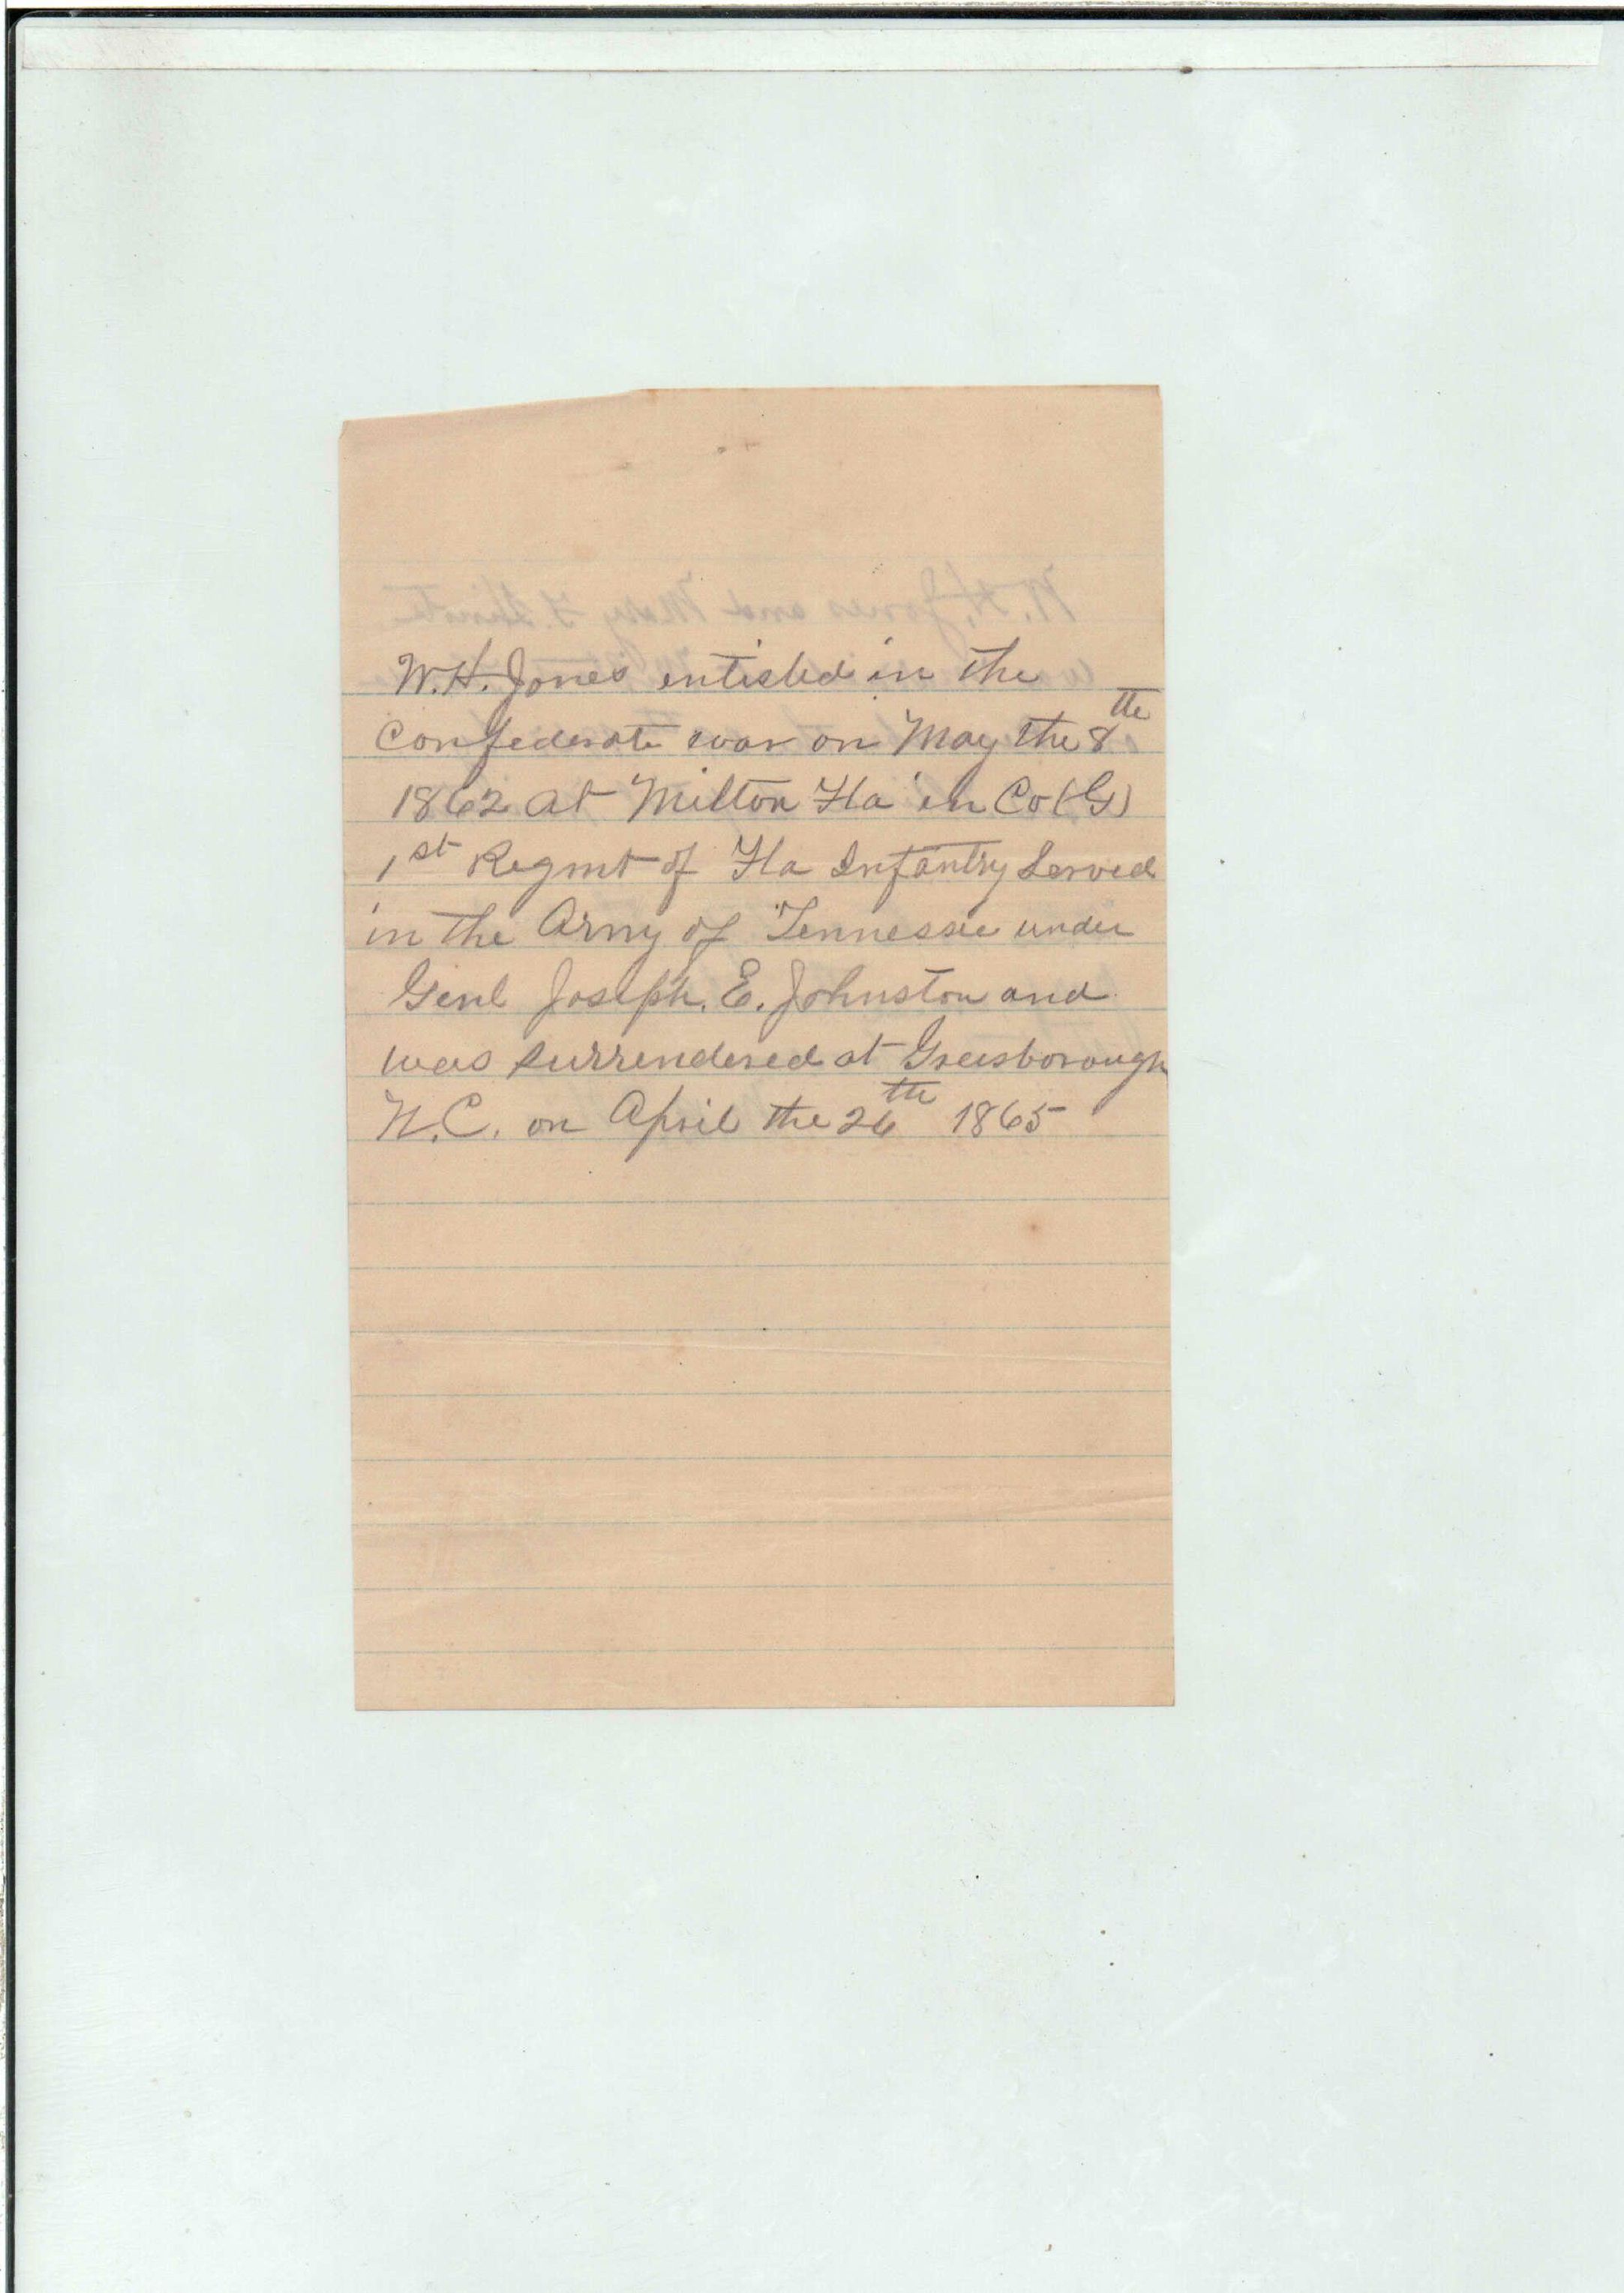 W.H. Jones entisled in the
Confederate war on May the 8th
1862 at Milton Fla in Co (G)
1st Regmt of Fla Infantry Served
in the Army of Tennessee under
Genl Joseph. E. Johnston and
was surrendered at Greesborough
N.C. on April the 26th 1865